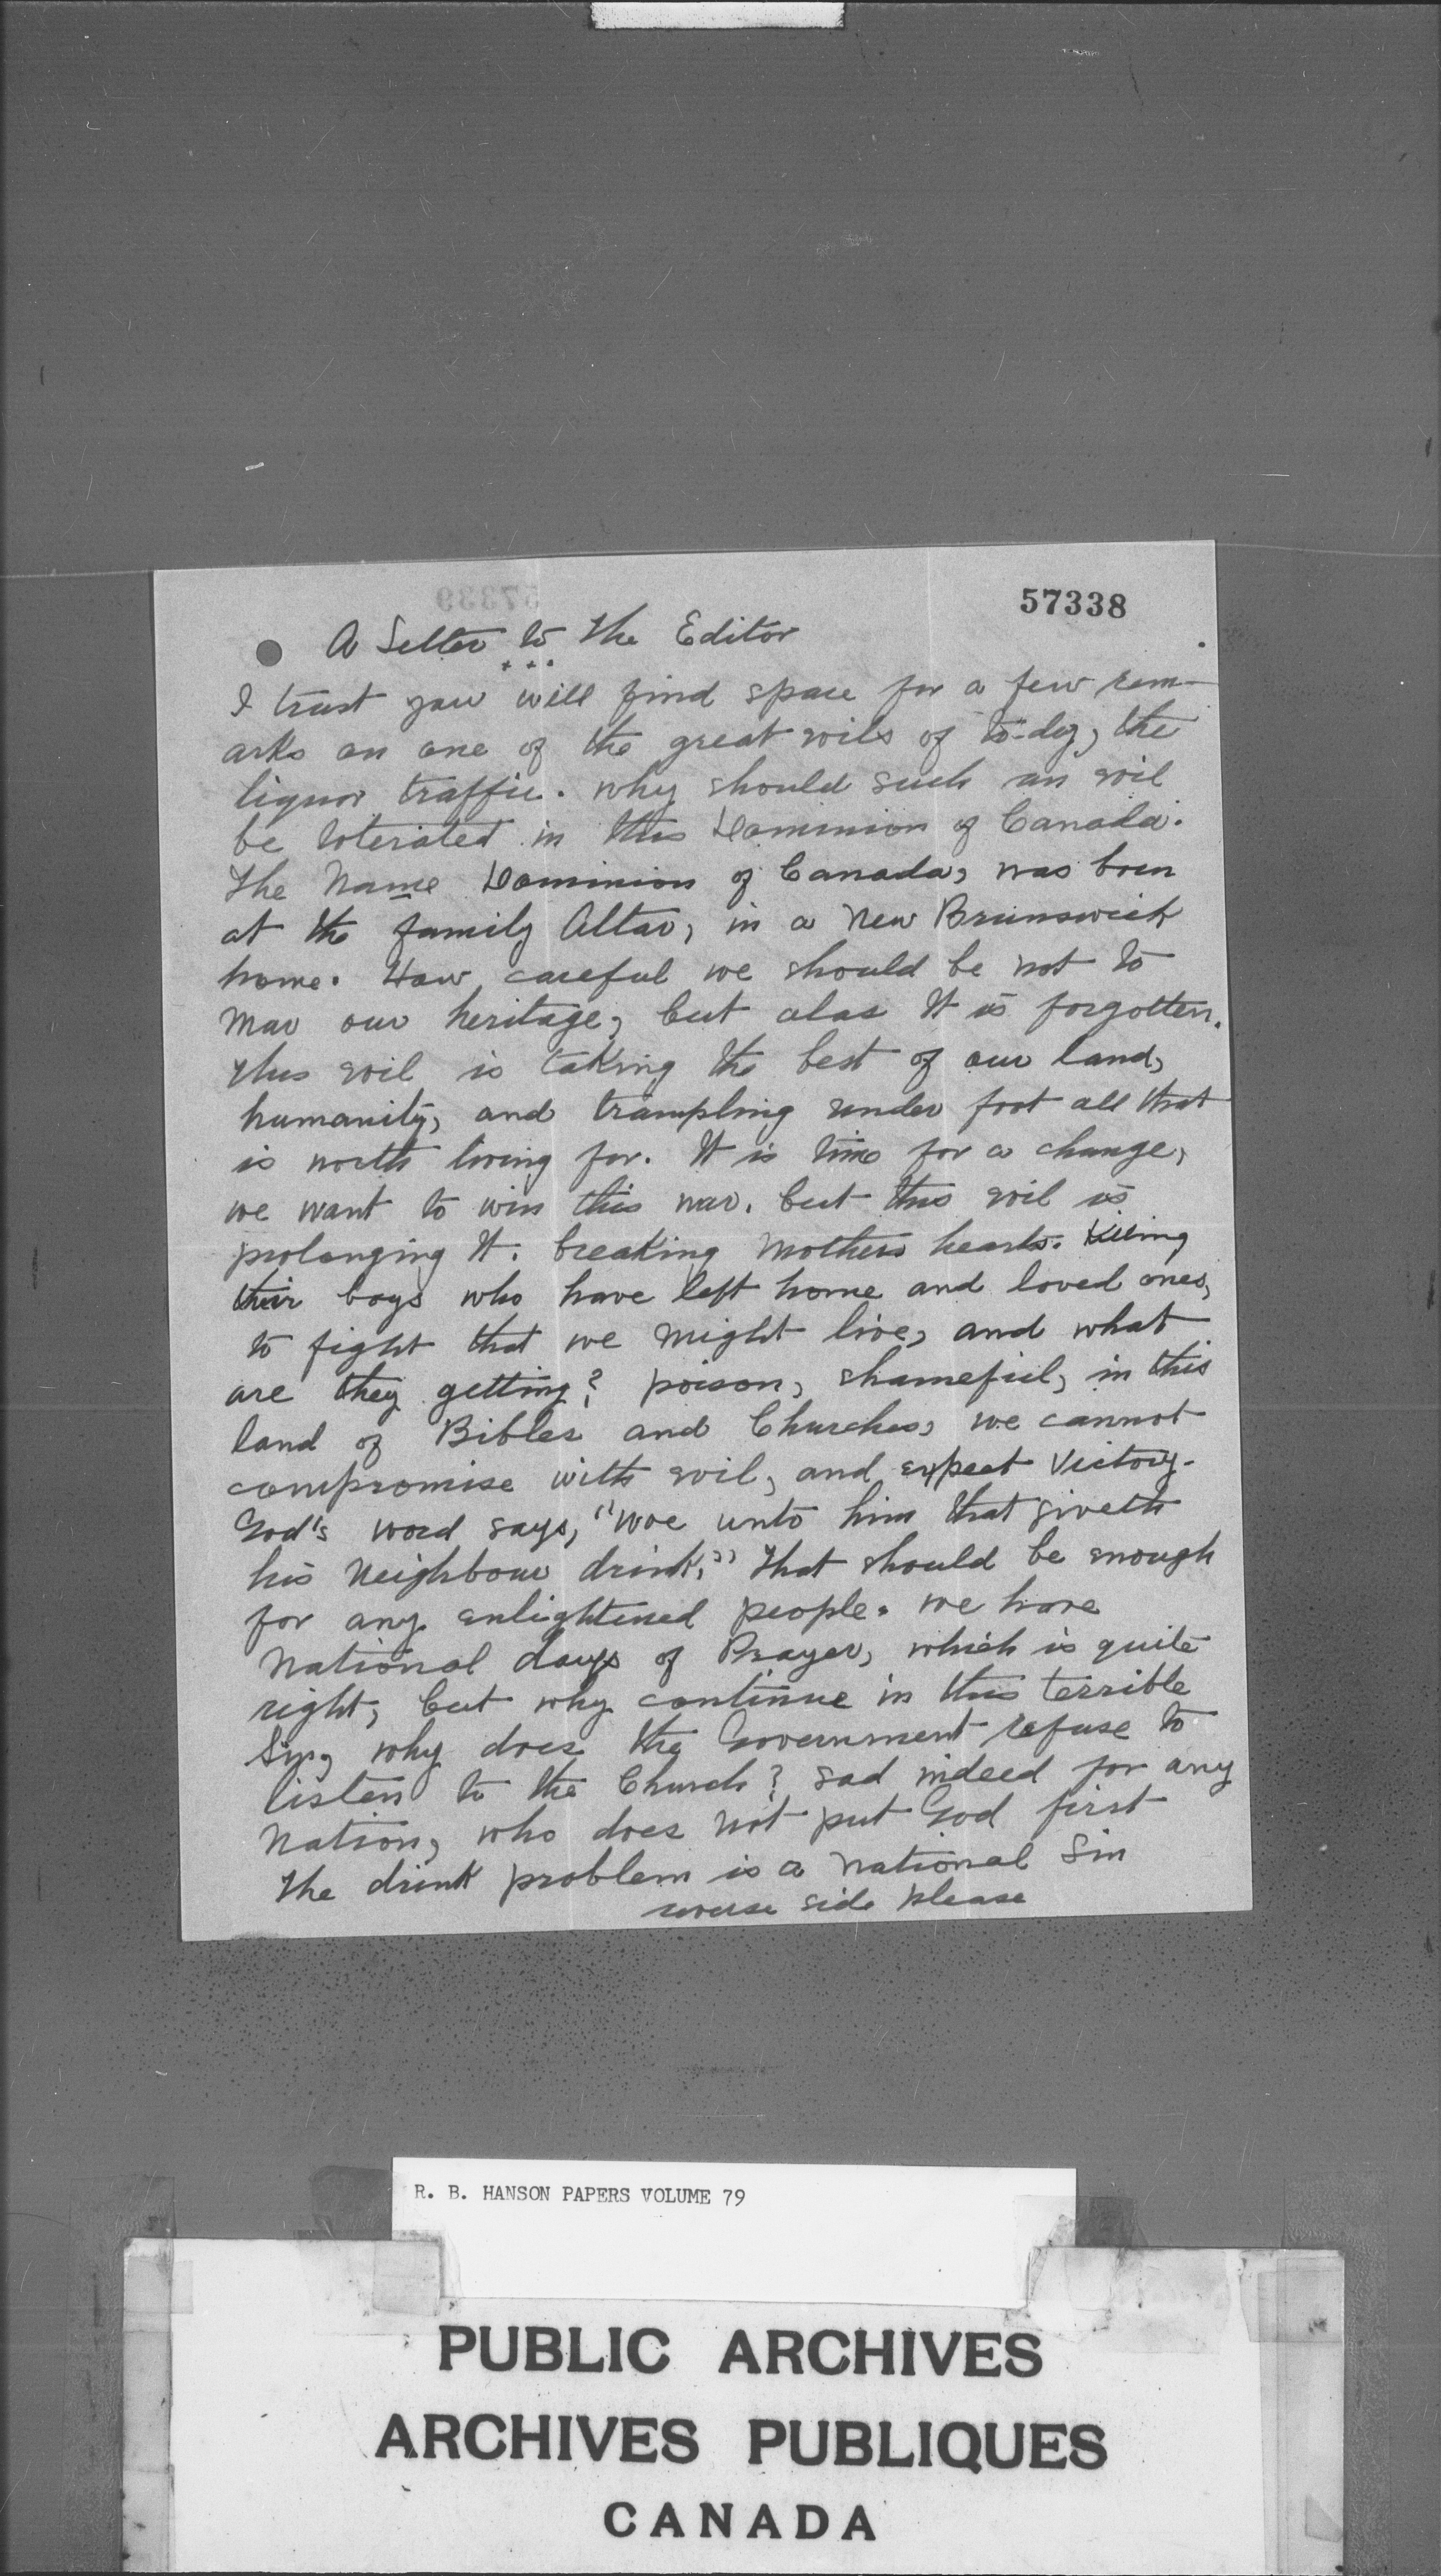 57338
A Letter to The Editor
I trust you will find space for a few rem-
arks on one of the great evils of to-day, the
liquor traffic. why should such an evil
be tolerated in this Dominion of Canada.
The Name Dominion of Canada, was born
at the family Altar, in a New Brunswick
home. How careful we should be not to
mar our heritage, but alas It is forgotten.
This evil is taking the best of our land,
humanity, and trampling under foot all that
is worth living for. It is time for a change,
we want to win this war. but this evil is
prolonging It. breaking Mothers hearts. Killing
their boys who have left home and loved ones,
to fight that we might live, and what
are they getting? poison, shameful, in this
land of Bibles and Churches, we cannot
compromise with evil, and expect Victory.
God's word says, "Woe unto him that giveth
his Neighbour drink," That should be enough
for any enlightened people. we have
National days of Prayer, which is quite
right, but why continue in this terrible
Sin, why does the Government refuse to
listen to the Church? sad indeed for any
Nation, who does not put God first
The drink problem is a National Sin
reverse side please
R. B. HANSON PAPERS VOLUME 79
PUBLIC ARCHIVES
ARCHIVES PUBLIQUES
CANADA